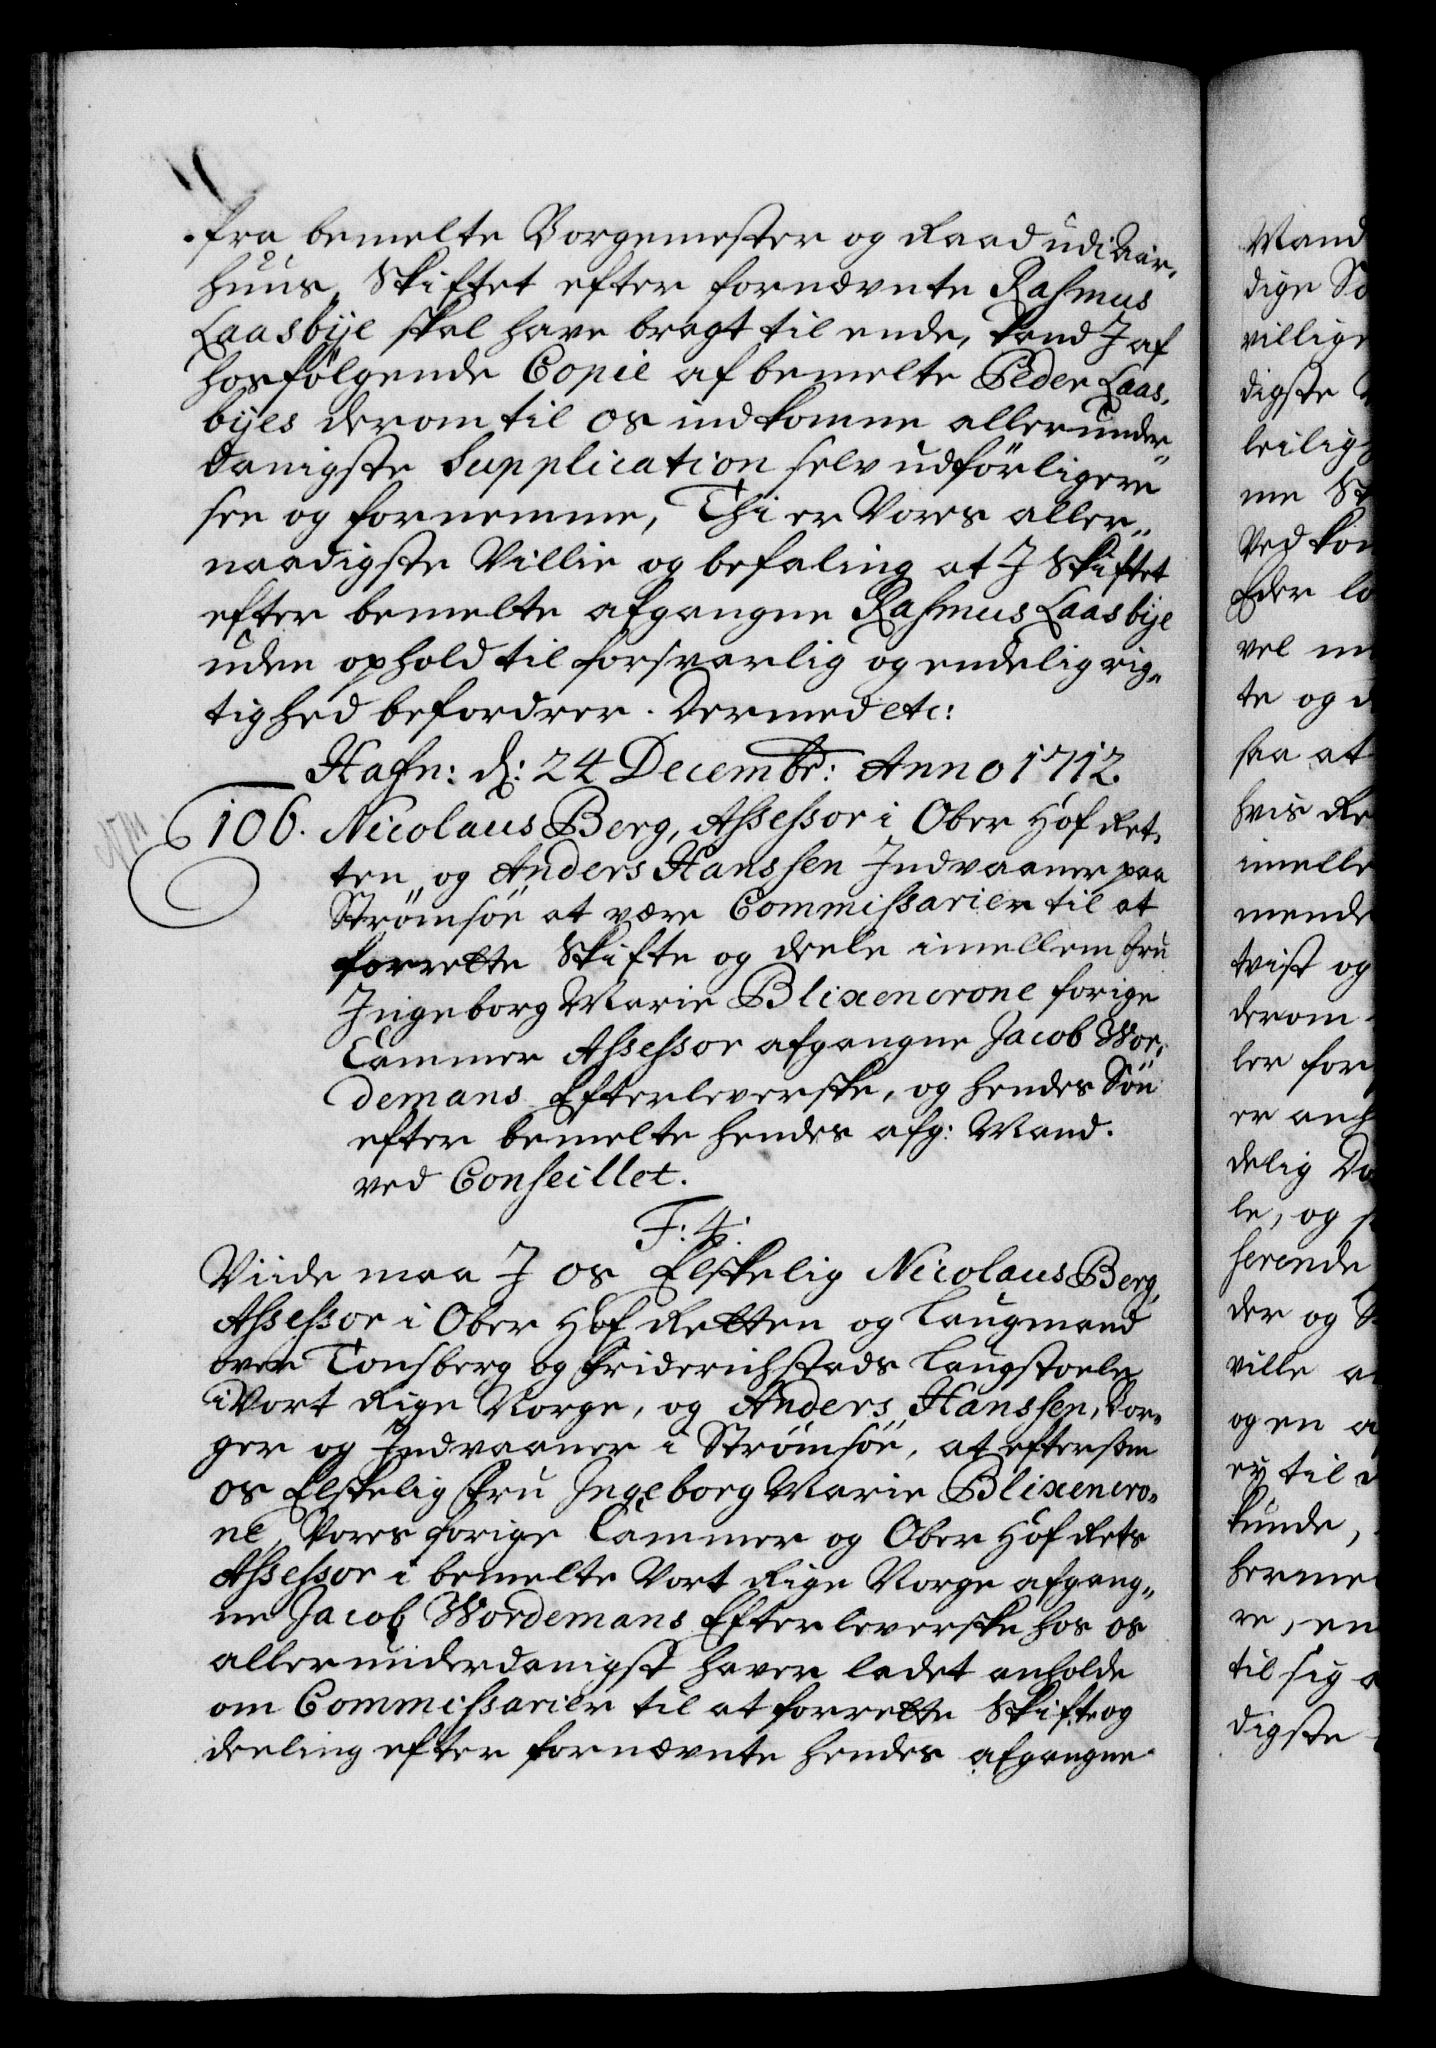 fra bemelte Borgemester og Raad udi Aar-
huus, Skiftet efter fornævnte Rasmus
Laasbÿe skal have bragt til ende, kand J af
hosfølgende Copie af bemelte Peder Laas-
bÿes derom til os indkomne allerunder-
danigste Supplication selv udførligere
see og fornemme, Thi er Vores aller-
naadigste Villie og befaling at J Skiftet
efter bemelte afgangne Rasmus Laasbÿe
uden ophold til forsvarlig og endelig rig-
tighed befordrer. Dermed etc:
Hafn: d: 24 Decembr: Anno 1712.
106. Nicolaus Berg, Assessor i Ober Hof Ret-
ten, og Anders Hanssen Indvaaner paa
Strømsöe at være Commissarier til at
forrette Skifte og deele imellem Fru
Ingeborg Marie Blixencrone forige
Cammer Assessor afgangne Jacob Wor-
demans Efterleverske, og hendes Sön
efter bemelte hendes afg: Mand.
ved Conseillet.
F: 4.
Viide maa J os Elskelig Nicolaus Berg,
Assessor i Ober Hof Retten og Laugmand
over Tonsberg og Friderichstads Laugstoele
i Vort Rige Norge, og Anders Hanssen, Bor-
ger og Indvaaner i Strømsöe, at eftersom
os Elskelig Fru Ingeborg Marie Blixencro-
ne, Vores forige Cammer og Ober Hof Rets
Assessor i bemelte Vort Rige Norge afgang-
ne Jacob Wordemans Efterleverske hos os
allerunderdanigst haver ladet anholde
om Commissarier til at forrette Skifte og
deeling efter fornævnte hendes afgangne
Mand
dige
villige
digste
leilig
me
Ved kom
Eder
vel
te og
saa at
hvis
imelle
mende
tvist og
derom
ler for
er anh
delig
le, og
serende
der og
ville
og en
ey til
kunde,
herme
re, en
til sig
digste